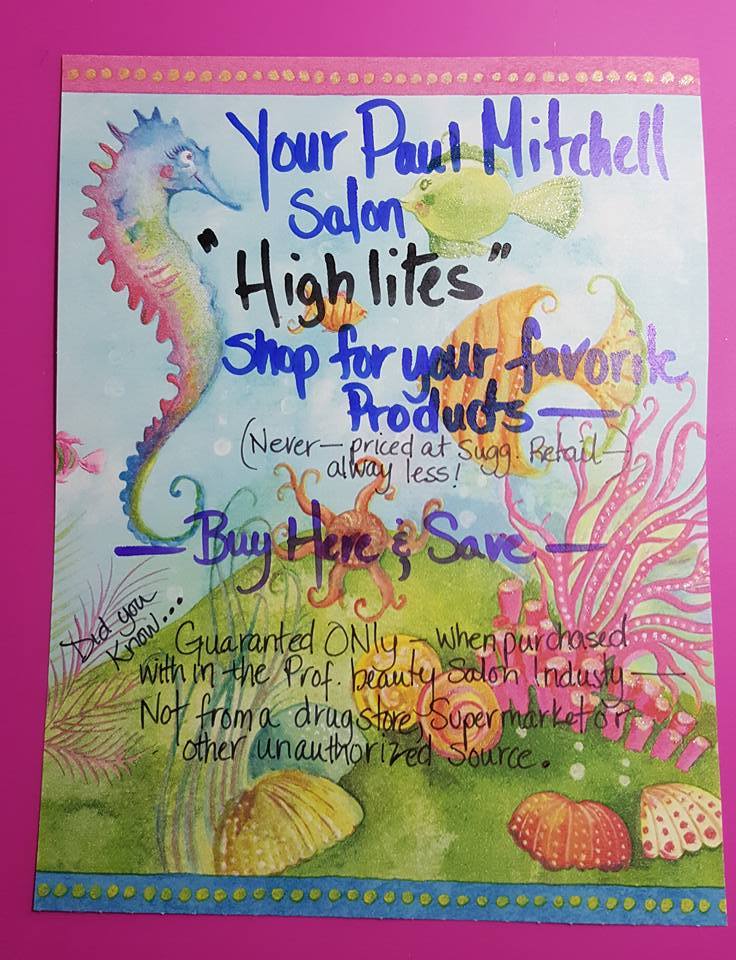 Your Paul Mitchell
Salon
"Highlites"
Shop for your favorite
Products —
(Never — priced at Sugg. Retail —
alway less!)
— Buy Here & Save —
Did you
Know...
Guaranted ONLY — when purchased
with in the Prof. beauty Salon Industy —
Not from a drugstore, Supermarket or
other unauthorized source.